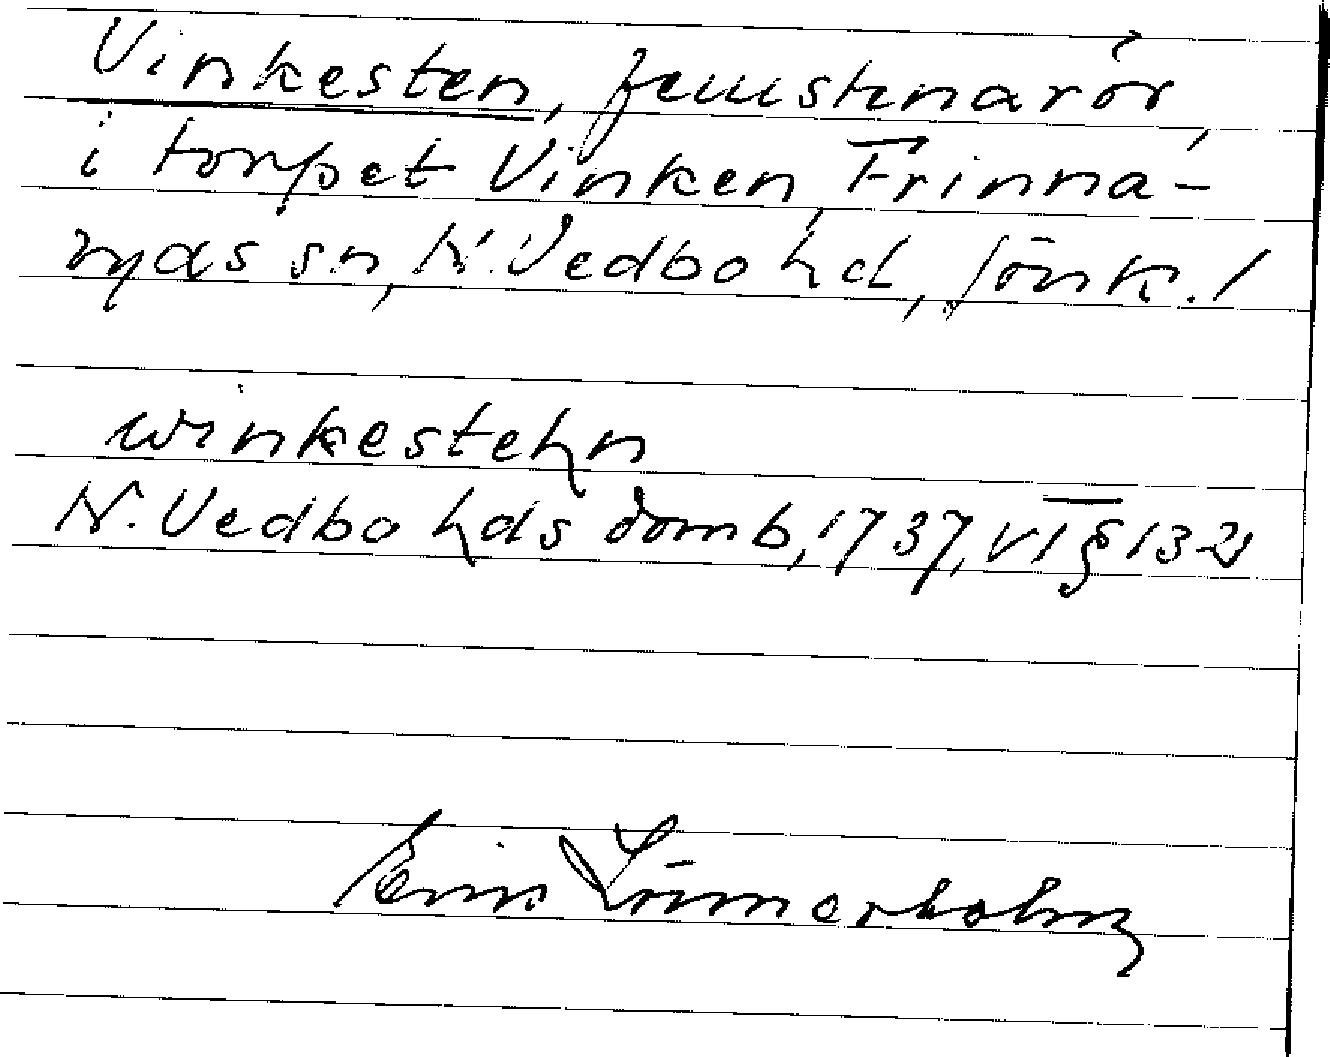 Vinkesten, femstenarör,
i torpet Vinken, Frinna-
ryds sn, N. Vedbo hd, Jönk. l
winkestehn
N. Vedbo hds domb, 1737, VI § 132
Erik Lönnerholm